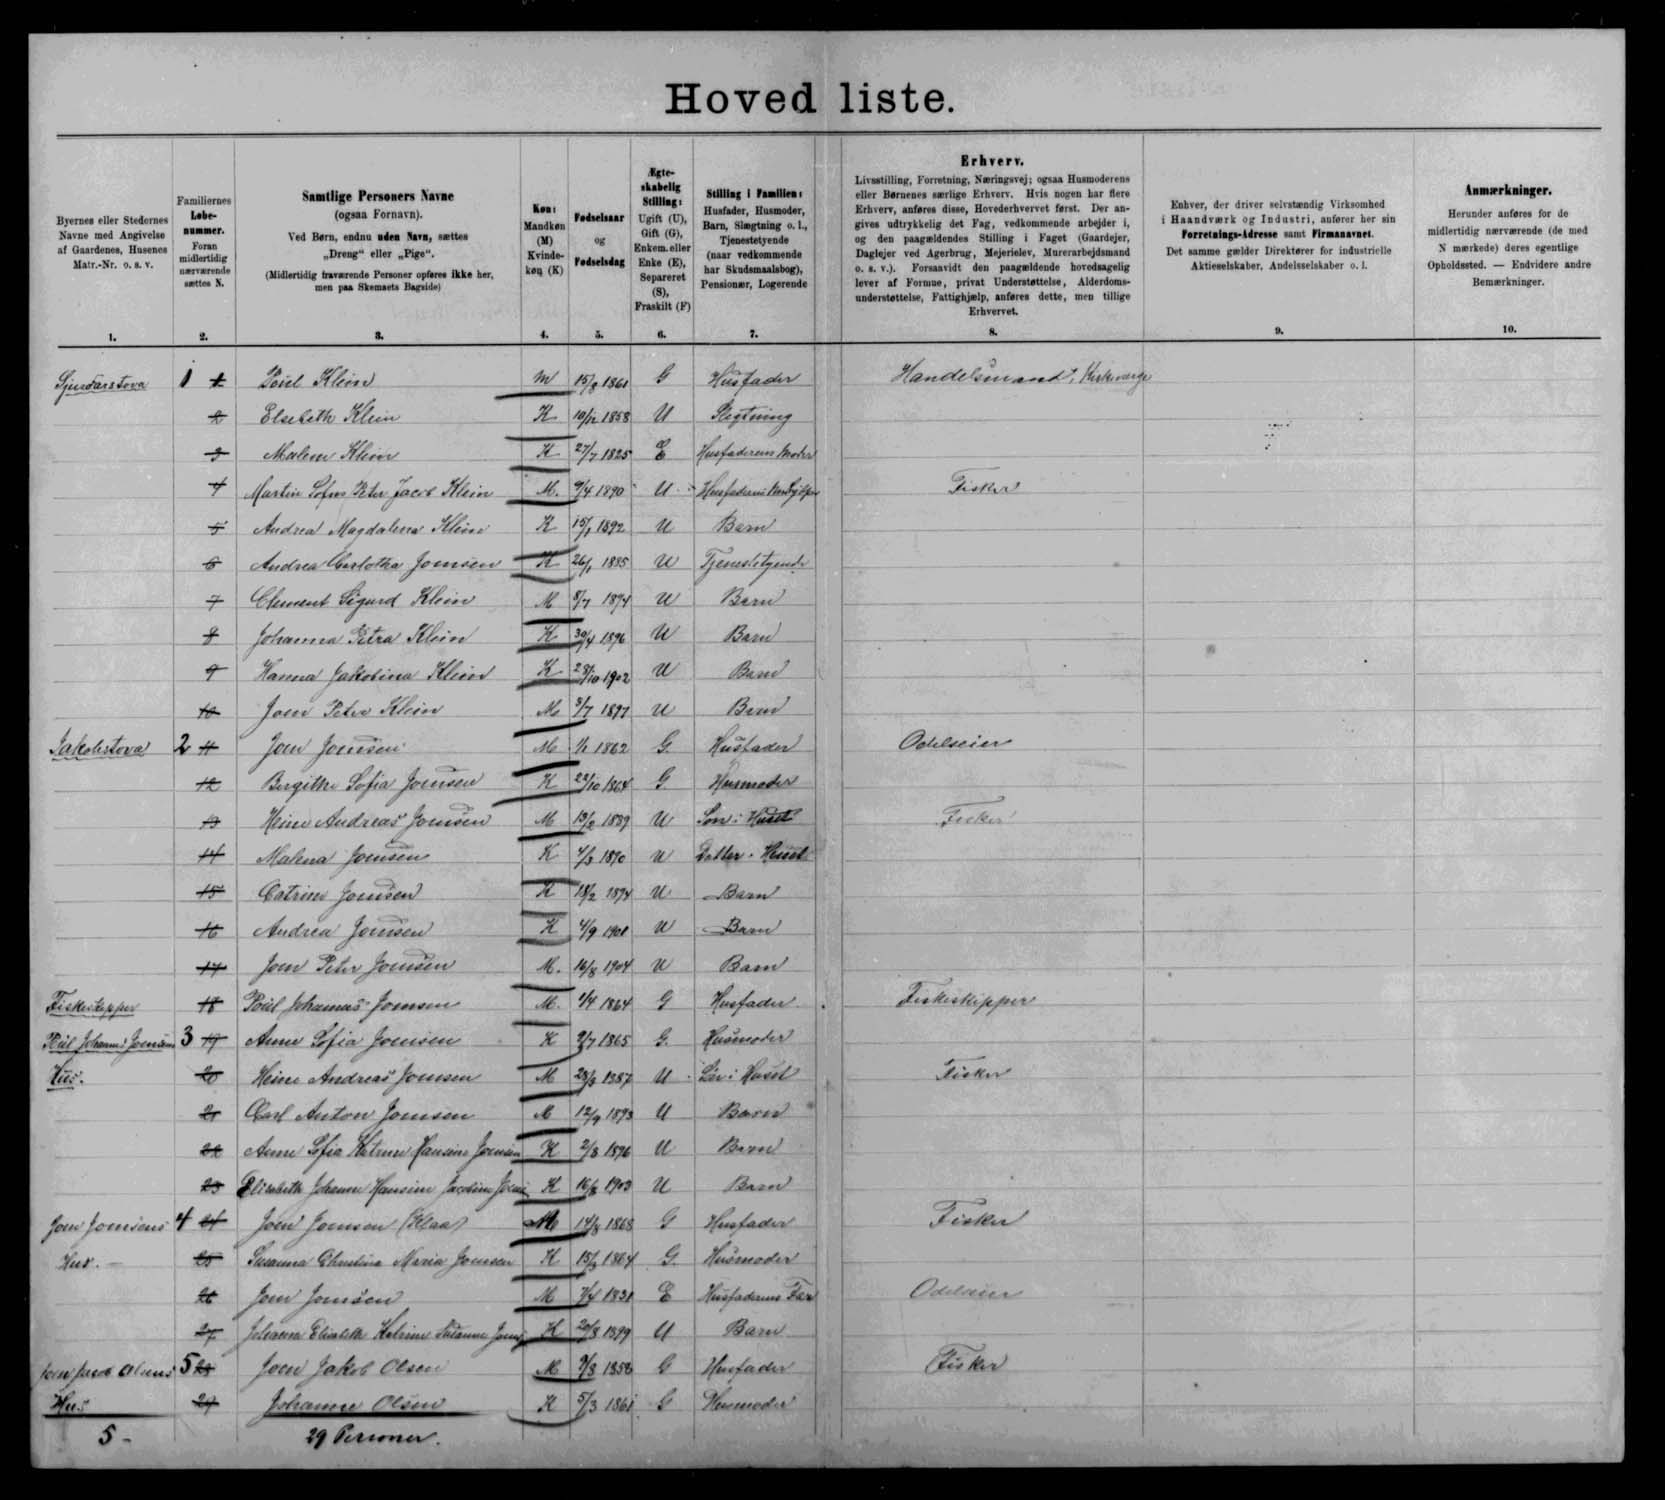 Hoved liste.
Byernes eller Stedernes
Navne med Angivelse
af Gaardenes, Husenes
Matr.-Nr. o. s. v.
1.
Familiernes
Løbe-
nummer.
Foran
midlertidig
nærværende
sættes N.
2.
Samtlige Personers Navne
(ogsaa Fornavn).
Ved Børn, endnu uden Navn, sættes
„Dreng“ eller „Pige“.
(Midlertidig fraværende Personer opføres ikke her,
men paa Skemaets Bagside)
3.
Køn:
Mandkøn
(M)
Kvinde-
køn (K)
4.
Fødselsaar
og
Fødselsdag
5.
Ægte-
skabelig
Stilling:
Ugift (U),
Gift (G),
Enkem. eller
Enke (E),
Separeret
(S),
Fraskilt (F)
6.
Stilling i Familien:
Husfader, Husmoder,
Barn, Slægtning o. l.,
Tjenestetyende
(naar vedkommende
har Skudsmaalsbog),
Pensionær, Logerende
7.
Erhverv.
Livsstilling, Forretning, Næringsvej; ogsaa Husmoderens
eller Børnenes særlige Erhverv. Hvis nogen har flere
Erhverv, anføres disse, Hovederhvervet først. Der an-
gives udtrykkelig det Fag, vedkommende arbejder i,
og den paagældendes Stilling i Faget (Gaardejer,
Daglejer ved Agerbrug, Mejerielev, Murerarbejdsmand
o. s. v.). Forsaavidt den paagældende hovedsagelig
lever af Formue, privat Understøttelse, Alderdoms-
understøttelse, Fattighjælp, anføres dette, men tillige
Erhvervet.
8.
Enhver, der driver selvstændig Virksomhed
i Haandværk og Industri, anfører her sin
Forretnings-Adresse samt Firmanavnet.
Det samme gælder Direktører for industrielle
Aktieselskaber, Andelsselskaber o. l.
9.
Anmærkninger.
Herunder anføres for de
midlertidig nærværende (de med
N mærkede) deres egentlige
Opholdssted. — Endvidere andre
Bemærkninger.
10.
Sjurdarstova 1 1 Poul Klein M 15/8 1861 G Husfader Handelsmand, Kirkeværge
2 Elsebeth Klein K 10/12 1858 U Slegtning
3 Malene Klein K 27/7 1825 E Husfaderens Moder
4 Martin Sofus Peter Jacob Klein M. 9/4 1890 U Husfaderens Fisker
5 Andrea Magdalena Klein K 15/1 1892 U Barn
6 Andrea Carlotha Joensen K 26/1 1885 U Tjenestetyende
7 Clement Sigurd Klein M 8/7 1894 U Barn
8 Johanna Petra Klein K 30/4 1896 U Barn
9 Hanna Jakobina Klein K 28/10 1902 U Barn
10 Joen Peter Klein M. 3/7 1897 U Barn
Jakobstova 2 11 Joen Joensen M. 1/1 1862 G. Husfader Odelseier
12 Birgithe Sofia Joensen K 22/10 1864 G Husmoder
13 Heine Andreas Joensen M 13/2 1889 U Søn i Huset Fisker
14 Malena Joensen K 4/3 1890 U Datter i Huset
15 Catrine Joensen K 18/2 1894 U Barn
16 Andrea Joensen K 4/9 1901 U Barn
17 Joen Peter Joensen M. 16/8 1904 U Barn
Fiskeskipper 18 Poul Johannes Joensen M. 1/4 1864 G Husfader Fiskeskipper
Poul Johannes Joensens 3 19 Anne Sofia Joensen K 2/7 1865 G. Husmoder
Hus. 20 Heine Andreas Joensen M 28/3 1887 U Søn i Huset Fisker
21 Carl Anton Joensen M 12/9 1893 U Barn
22 Anne Sofia Katrine Hansine Joensen K 2/8 1896 U Barn
23 Elisabeth Johanne Hansine K 16/8 1903 U Barn
Joen Joensens 4 24 Joen Joensen (Klaa) M 14/8 1868 G Husfader Fisker
Hus. 25 Susanna Christina Maria Joensen K 15/3 1864 G. Husmoder
26 Joen Joensen M 1/4 1831 E Husfaderens Far Odelseier
27 Johanna Elisabeth Katrine Susanne K 20/8 1899 U Barn
Joen Jacob Olsens 5 28 Joen Jakob Olsen M 9/8 1858 G Husfader Fisker
Hus 29 Johanne Olsen K 5/3 1861 G Husmoder
5 - 29 Personer.